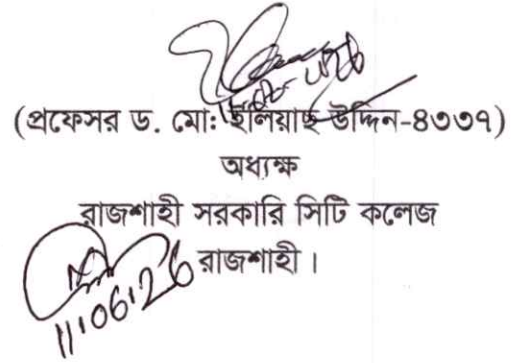 (প্রফেসর ড. মো: ইলিয়াছ উদ্দিন-৪৩৩৭)
অধ্যক্ষ
রাজশাহী সরকারি সিটি কলেজ
রাজশাহী।
11.06.26